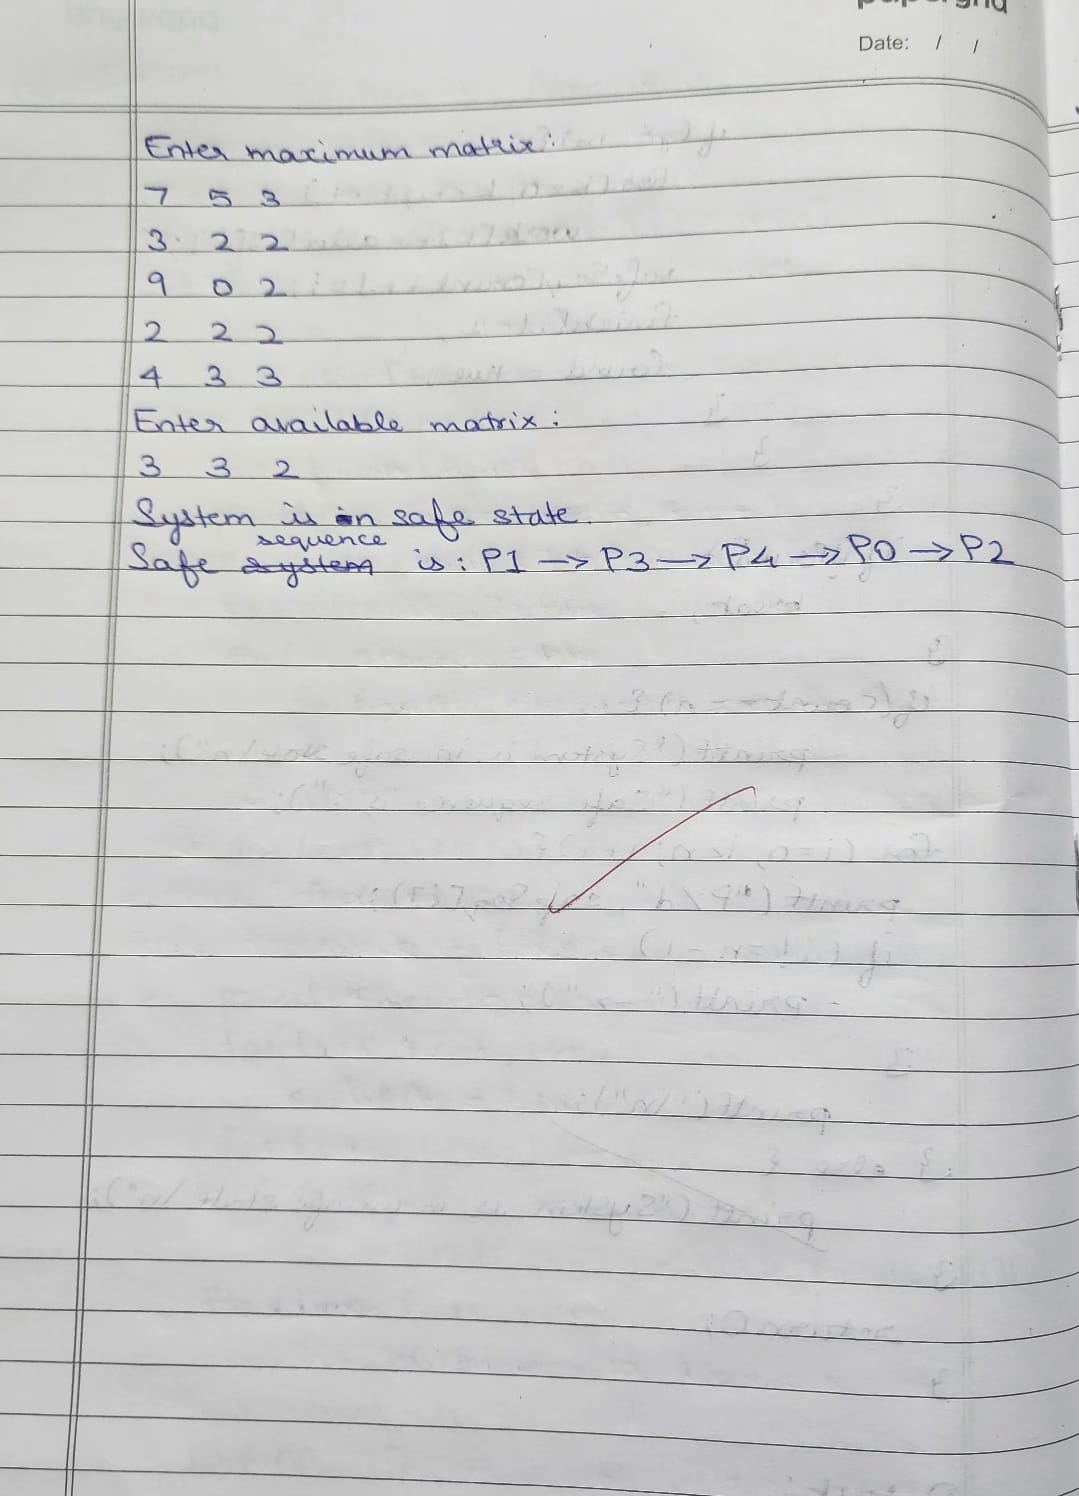 Date: / /
Enter maximum matrix:
7 5 3
3 2 2
9 0 2
2 2 2
4 3 3
Enter available matrix:
3 3 2
System is in safe state.
sequence
Safe system is: P1 -> P3 -> P4 -> P0 -> P2